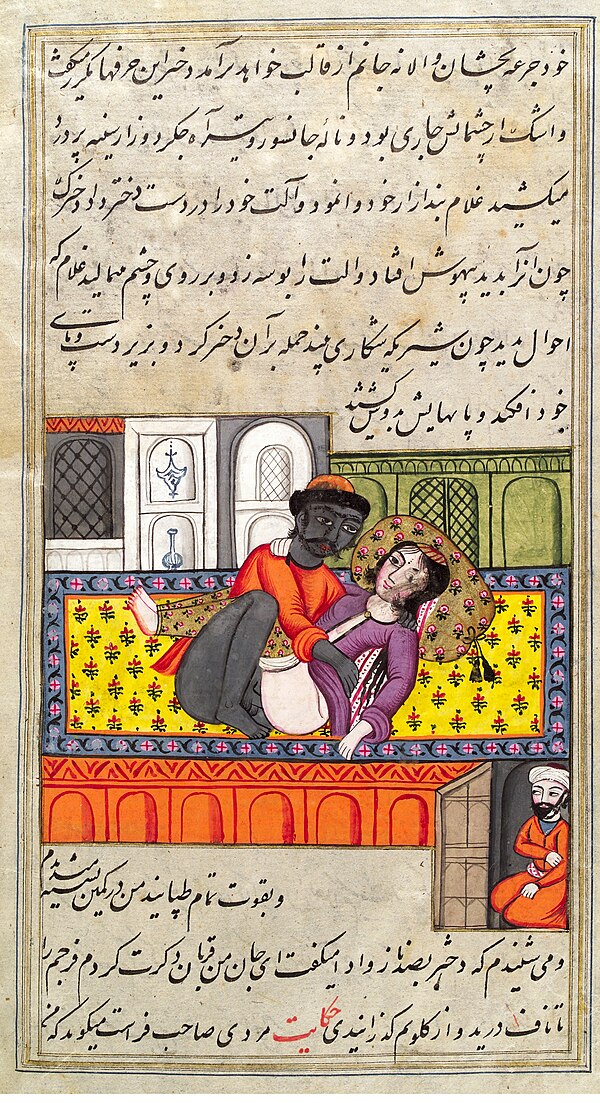 خود جرعه بچشان والا نه جانم از قالب خواهد برآمد دختر این حرفها میگفت
و اشک از چشمانش جاری بود و ناله جانسوز و آه جگردوز از سینه پر درد
میکشید غلام بند ازار خود وا نمود و آلت خود را در دست دختر داد دخترک
چون آنرا بدید بیهوش افتاد و آلت را بوسه زد و بر روی و چشم میمالید غلام که
احوال بدید چون شیر یکه شکاری بیند حمله بر آن دختر کرد و بزیر دست و پای
خود افکند و پایهایش بدوش کشید
و بقوت تمام طپانید من در کمین
و می شنیدم که دختر بصد ناز و ادا میگفت ای جان من قربان ذکرت گردم فرجم را
تا ناف درید و از گلویم گذرانیدی حکایت مردی صاحب فراست میگوید که